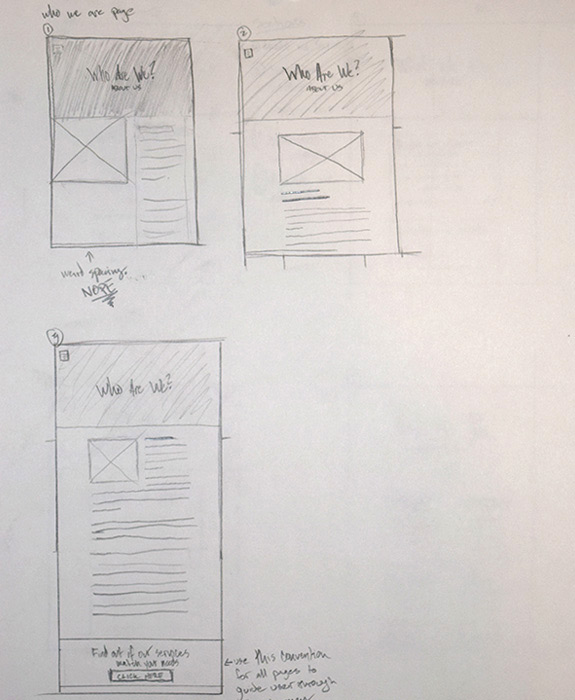 who we are page
1
Who Are We?
ABOUT US
weird spacing.
NOPE
2
Who Are We?
ABOUT US
3
Who Are We?
Find out if our services
match your needs
CLICK HERE
← use this convention
for all pages to
guide user through